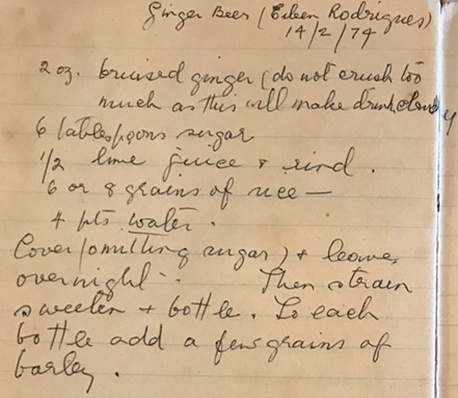 Ginger Beer (Eileen Rodrigues)
14/2/74
2 oz. bruised ginger (do not crush too
much as this will make drink cloudy
6 tablespoons sugar
1/2 lime juice & rind.
6 or 8 grains of rice —
4 pts water.
Cover (omitting sugar) & leave
overnight. Then strain
sweeten + bottle. To each
bottle add a few grains of
barley.